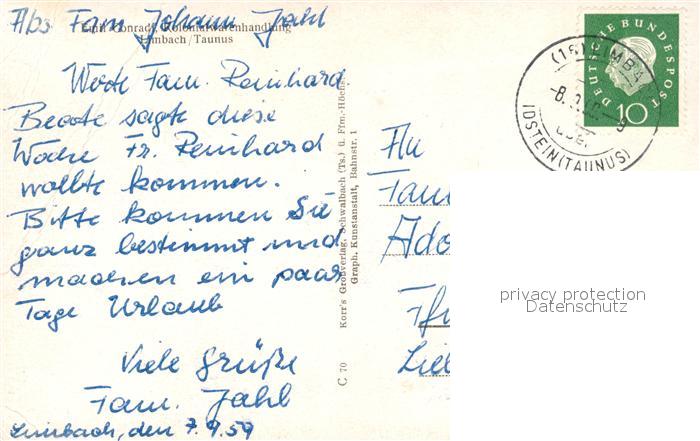 Abs. Fam Johann Jahl
Emil Conradi, Kolonialwarenhandlung
Limbach/Taunus
Werte Fam. Reinhard
Beate sagte diese
Woche Fr. Reinhard
wollte kommen.
Bitte kommen Sie
ganz bestimmt und
machen ein paar
Tage Urlaub
Viele Grüße
Fam. Jahl
Limbach, den 7.9.59
C 70 Korr's Großverlag, Schwalbach (Ts.) ü. Ffm.-Höchst
Graph. Kunstanstalt, Bahnstr. 1
DEUTSCHE BUNDESPOST
10
(16) LIMBA
-8.9.
über
IDSTEIN (TAUNUS)
An
Fam
Ado
Lie
privacy protection
Datenschutz